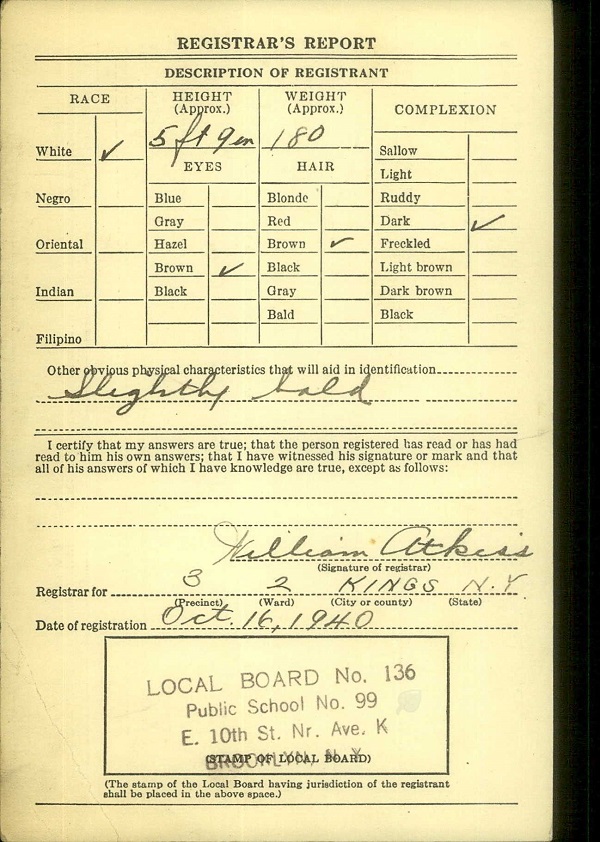 REGISTRAR'S REPORT
DESCRIPTION OF REGISTRANT
RACE
HEIGHT (Approx.)
WEIGHT (Approx.)
COMPLEXION
5 ft 9 in
180
White ✓
Negro
Oriental
Indian
Filipino
EYES
Blue
Gray
Hazel
Brown ✓
Black
HAIR
Blonde
Red
Brown ✓
Black
Gray
Bald
Sallow
Light
Ruddy
Dark ✓
Freckled
Light brown
Dark brown
Black
Other obvious physical characteristics that will aid in identification
Slightly bald
I certify that my answers are true; that the person registered has read or has had
read to him his own answers; that I have witnessed his signature or mark and that
all of his answers of which I have knowledge are true, except as follows:
William Atkiss
(Signature of registrar)
Registrar for 3 2 KINGS N.Y.
(Precinct) (Ward) (City or county) (State)
Date of registration Oct. 16, 1940
LOCAL BOARD No. 136
Public School No. 99
E. 10th St. Nr. Ave. K
BROOKLYN, N. Y.
(STAMP OF LOCAL BOARD)
(The stamp of the Local Board having jurisdiction of the registrant
shall be placed in the above space.)